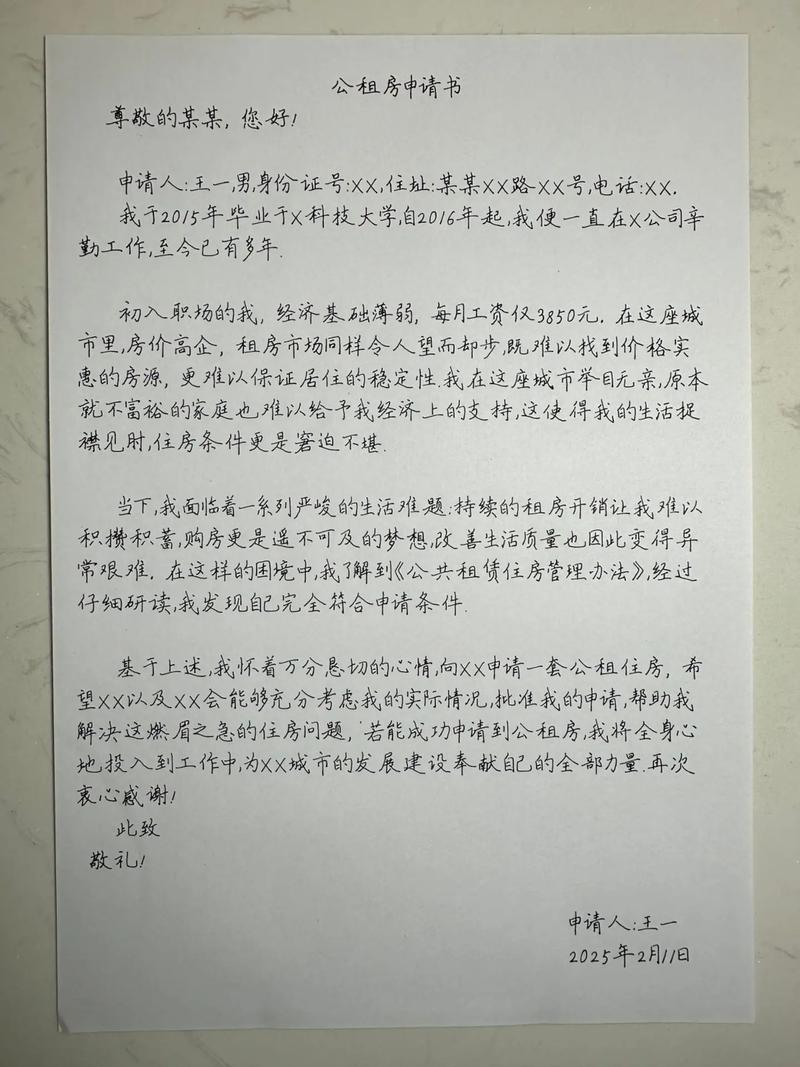 公租房申请书
尊敬的某某，您好！
申请人：王一，男，身份证号：XX，住址：某某XX路XX号，电话：XX.
我于2015年毕业于X科技大学，自2016年起，我便一直在X公司辛
勤工作，至今已有多年.
初入职场的我，经济基础薄弱，每月工资仅3850元. 在这座城
市里，房价高企，租房市场同样令人望而却步，既难以找到价格实
惠的房源，更难以保证居住的稳定性.我在这座城市举目无亲，原本
就不富裕的家庭也难以给予我经济上的支持，这使得我的生活捉
襟见肘，住房条件更是窘迫不堪.
当下，我面临着一系列严峻的生活难题：持续的租房开销让我难以
积攒积蓄，购房更是遥不可及的梦想，改善生活质量也因此变得异
常艰难. 在这样的困境中，我了解到《公共租赁住房管理办法》，经过
仔细研读，我发现自己完全符合申请条件.
基于上述，我怀着万分恳切的心情，向XX申请一套公租住房，希
望XX以及XX会能够充分考虑我的实际情况，批准我的申请，帮助我
解决这燃眉之急的住房问题，若能成功申请到公租房，我将全身心
地投入到工作中，为XX城市的发展建设奉献自己的全部力量.再次
衷心感谢！
此致
敬礼！
申请人：王一
2025年2月11日